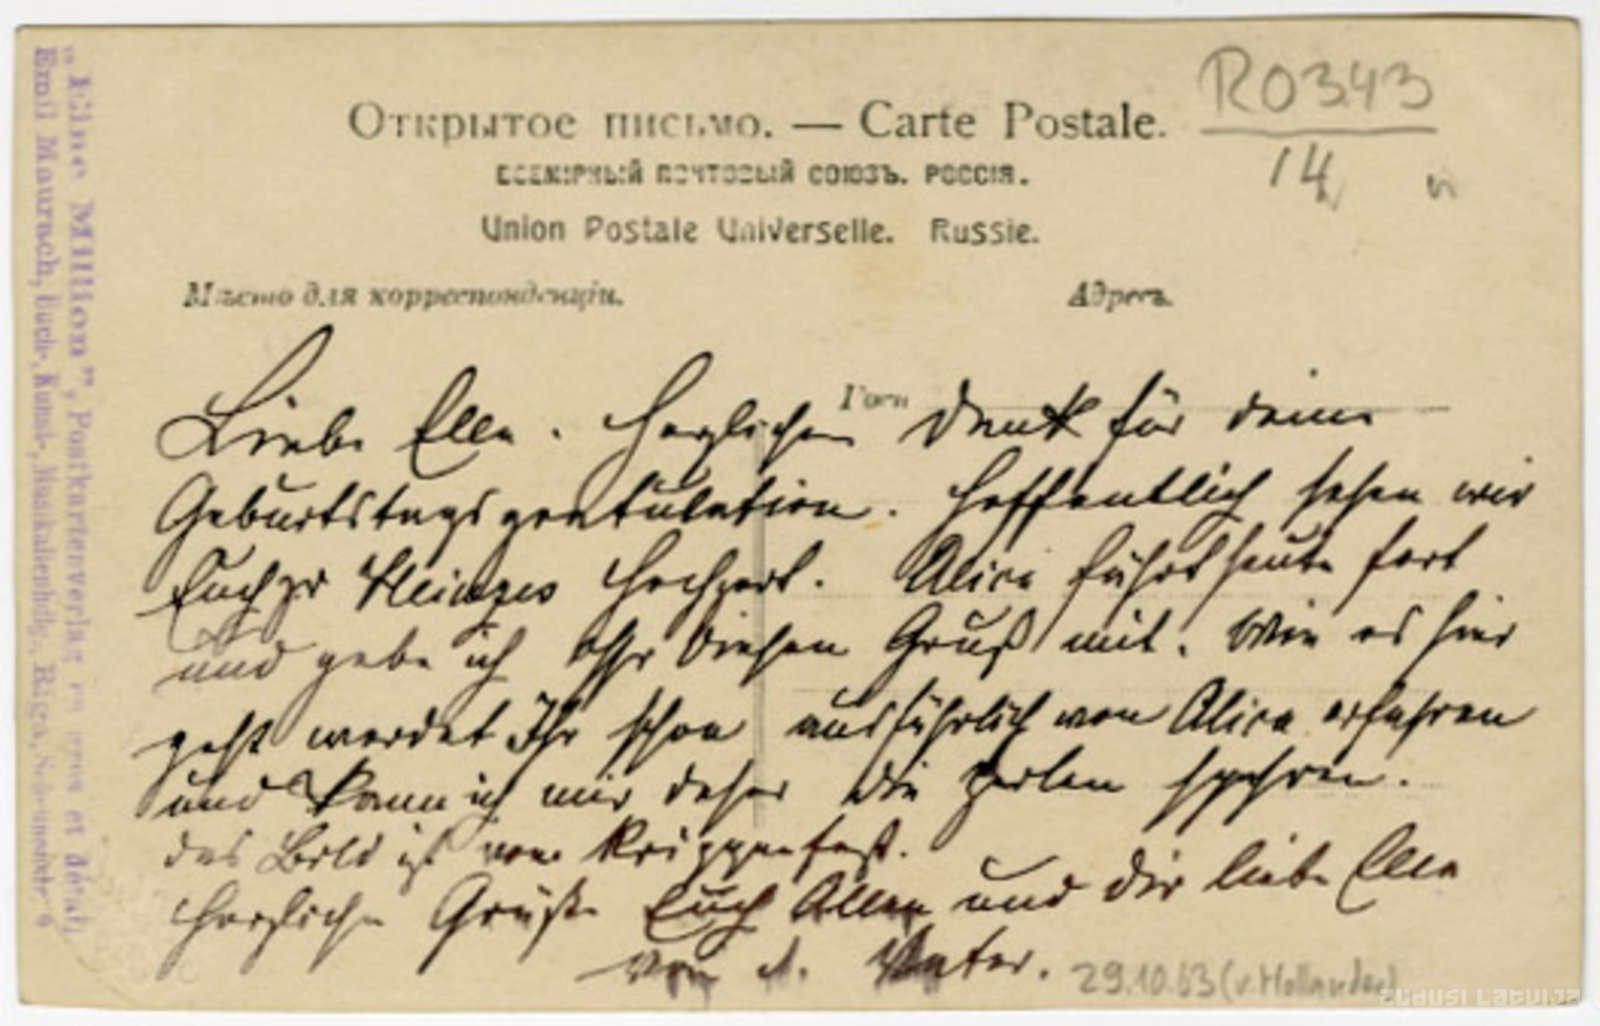 R0343
14
Открытое письмо. — Carte Postale.
ВСЕМІРНЫЙ ПОЧТОВЫЙ СОЮЗЪ. РОССІЯ.
Union Postale Universelle. Russie.
Мѣсто для корреспонденціи.
Адресъ.
Liebe Ella. Herzlichen Dank für deine
Geburtstagsgratulation. Hoffentlich sehen wir
Euch zr Heinzes Hochzeit. Alice fährt heute fort
und gebe ich Ihr diesen Gruß mit. Wie es hier
geht werdet Ihr schon ausführlich von Alice erfahren
und kann ich mir daher die Zeilen sparen.
das Bild ist vom Krippenfest.
Herzliche Grüße Euch Allen und dir liebe Ella
von d. Vater.
29.10.63 (v. Hollander)
„Eine Million”, Postkartenverlag en gros et détail,
Emil Maurach, Buch-, Kunst-, Musikalienhdlg., Riga, Scheunenstr
zudusi Latvija